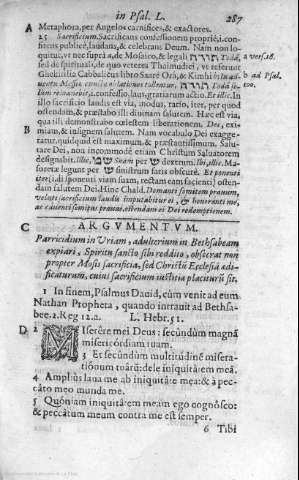 in Psal. L. 287
A Metaphora, per Angelos carnifices, & exactores.
25 Sacrificium. Sacrificans confessionem propriè, i. con-
fitens publicè, laudans, & celebrans Deum. Nam non lo-
quitur, vt nec suprà a, de Mosaico, & legali תודה Todà, a vers. 18.
sed de spirituali, & quo veteres Thalmudici, vt referunt
Ghekinilia Cabbalicus libro Saarè Orà, & Kimhi b b ad Psal.
100.
illo sacrificio laudis est via, modus, ratio, iter, per quod
ostendam, & præstabo illi diuinam salutem. Hæc est via,
qua illi demonstrabo cælestem liberationem. Dei, exi-
B miam, & insignem salutem. Nam vocabulo Dei exagge-
ratur, quidquid est maximum, & præstantissimum. Salu-
tare Dei, non incommodè etiam Christum Saluatorem
designabit. Illic, שם Sham per ש dextrum. Ibi, illic. Ma-
soreta legunt per ש sinistrum satis obscurè. Et ponenti
iter, i. disponenti viam suam, rectam eam facienti, osten-
dam salutem Dei. Hinc Chald. Domanti somitem prauum,
velut sacrificium laudis imputabitur ei, & honoranti me,
ac edienti somitem prauum, ostendam ei Dei redemptionem.
C ARGVMENTVM.
Parricidium in Vriam, adulterium in Bethsabeam
expiari, Spiritum sancto sibi reddito, obsecrat non
propter Mosis sacrificia, sed Christū Ecclesiā ædi-
ficaturum, cuius sacrificium iustitia placiturū sit.
1 In finem, Psalmus Dauid, cùm venit ad eum
Nathan Propheta, quando intrauit ad Bethsa-
bee. 2. Reg 12. a. L. Hebr. 51.
D 2 Miserêre mei Deus: secúndùm magnā
misericórdiam tuam.
3 Et secúndùm multitúdinē misera-
tiónum tuárū: dele iniquitátem meā.
4 Ampliùs laua me ab iniquitáte mea: & à pec-
cáto meo munda me.
5 Quóniam iniquitátem meam ego cognósco:
& peccátum meum contra me est semper.
6 Tibi